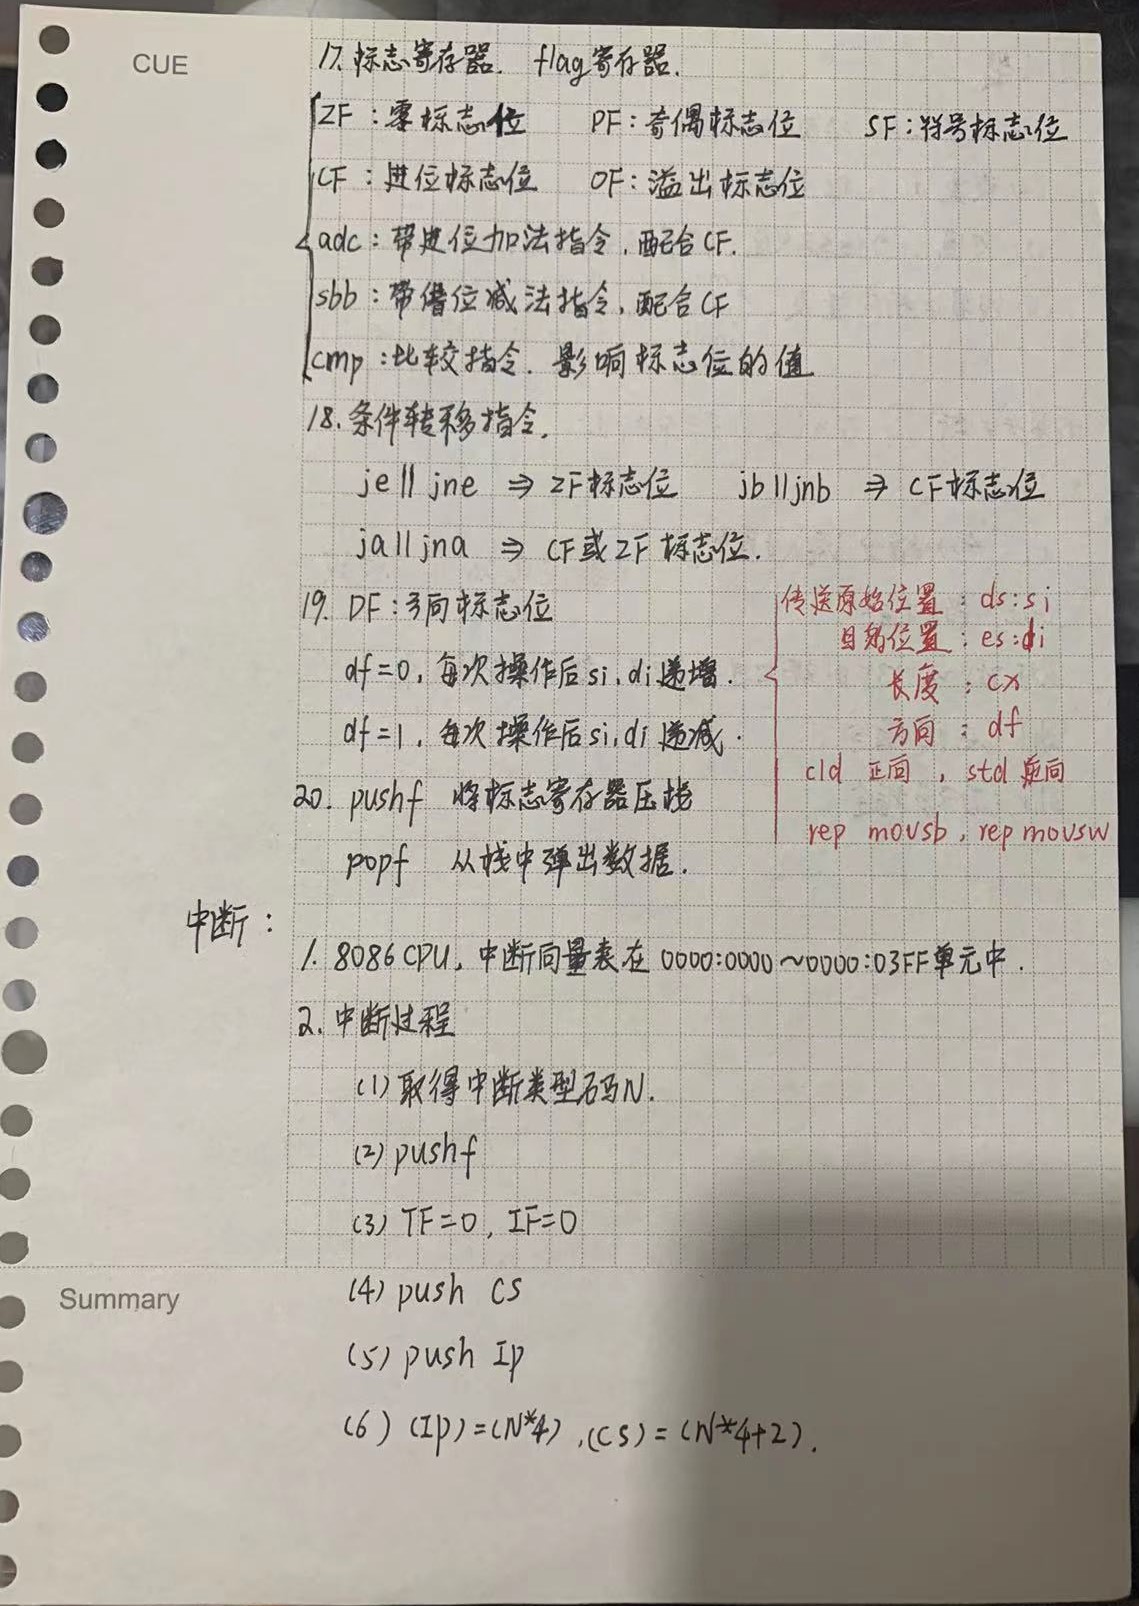 CUE
17. 标志寄存器. flag寄存器.
ZF：零标志位 PF：奇偶标志位 SF：符号标志位
CF：进位标志位 OF：溢出标志位
adc：带进位加法指令，配合CF.
sbb：带借位减法指令，配合CF
cmp：比较指令. 影响标志位的值
18. 条件转移指令.
je || jne ⇒ ZF标志位 jb || jnb ⇒ CF标志位
ja || jna ⇒ CF或ZF标志位.
19. DF：方向标志位
df=0，每次操作后si，di递增.
df=1，每次操作后si，di递减.
传送原始位置：ds:si
目的位置：es:di
长度：cx
方向：df
cld 正向，std 逆向
rep movsb，rep movsw
20. pushf 将标志寄存器压栈
popf 从栈中弹出数据.
中断：
1. 8086CPU，中断向量表在0000:0000～0000:03FF单元中.
2. 中断过程
(1) 取得中断类型码N.
(2) pushf
(3) TF=0，IF=0
Summary
(4) push CS
(5) push Ip
(6) (Ip)=(N*4)，(CS)=(N*4+2).